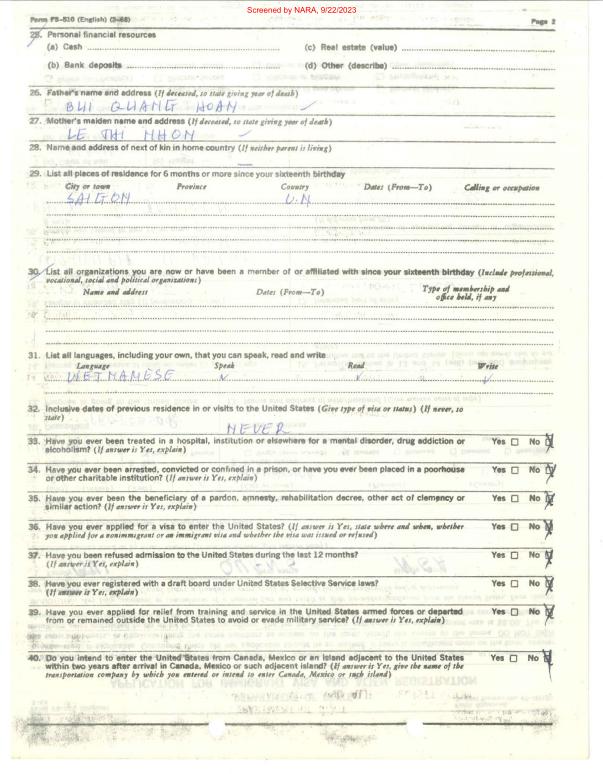 Screened by NARA, 9/22/2023
Form FS-510 (English) (3-68) Page 2
25. Personal financial resources
(a) Cash (c) Real estate (value)
(b) Bank deposits (d) Other (describe)
26. Father's name and address (If deceased, so state giving year of death)
BUI QUANG HOAN
27. Mother's maiden name and address (If deceased, so state giving year of death)
LE THI NHON
28. Name and address of next of kin in home country (If neither parent is living)
29. List all places of residence for 6 months or more since your sixteenth birthday
City or town Province Country Dates (From—To) Calling or occupation
SAIGON V.N
30. List all organizations you are now or have been a member of or affiliated with since your sixteenth birthday (Include professional,
vocational, social and political organizations)
Name and address Dates (From—To) Type of membership and
office held, if any
31. List all languages, including your own, that you can speak, read and write
Language Speak Read Write
VIETNAMESE ✓ ✓ ✓
32. Inclusive dates of previous residence in or visits to the United States (Give type of visa or status) (If never, so
state)
NEVER
33. Have you ever been treated in a hospital, institution or elsewhere for a mental disorder, drug addiction or Yes ☐ No ☒
alcoholism? (If answer is Yes, explain)
34. Have you ever been arrested, convicted or confined in a prison, or have you ever been placed in a poorhouse Yes ☐ No ☒
or other charitable institution? (If answer is Yes, explain)
35. Have you ever been the beneficiary of a pardon, amnesty, rehabilitation decree, other act of clemency or Yes ☐ No ☒
similar action? (If answer is Yes, explain)
36. Have you ever applied for a visa to enter the United States? (If answer is Yes, state where and when, whether Yes ☐ No ☒
you applied for a nonimmigrant or an immigrant visa and whether the visa was issued or refused)
37. Have you been refused admission to the United States during the last 12 months? Yes ☐ No ☒
(If answer is Yes, explain)
38. Have you ever registered with a draft board under United States Selective Service laws? Yes ☐ No ☒
(If answer is Yes, explain)
39. Have you ever applied for relief from training and service in the United States armed forces or departed Yes ☐ No ☒
from or remained outside the United States to avoid or evade military service? (If answer is Yes, explain)
40. Do you intend to enter the United States from Canada, Mexico or an island adjacent to the United States Yes ☐ No ☒
within two years after arrival in Canada, Mexico or such adjacent island? (If answer is Yes, give the name of the
transportation company by which you entered or intend to enter Canada, Mexico or such island)